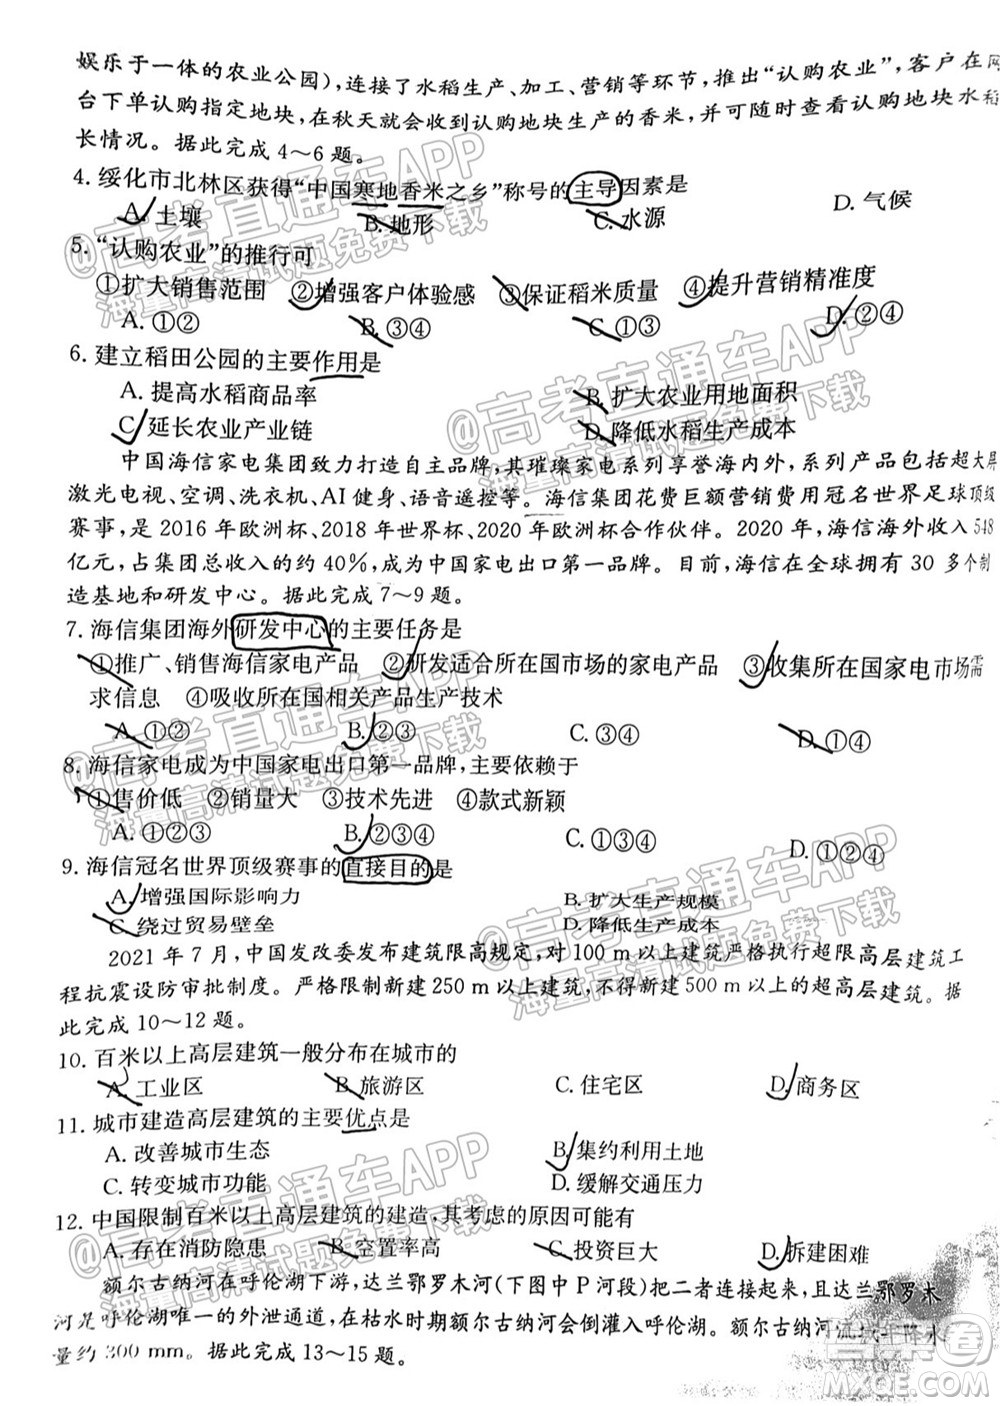 娱乐于一体的农业公园),连接了水稻生产、加工、营销等环节,推出“认购农业”,客户在网
台下单认购指定地块,在秋天就会收到认购地块生产的香米,并可随时查看认购地块水稻
长情况。据此完成4～6题。
4. 绥化市北林区获得“中国寒地香米之乡”称号的主导因素是
A. 土壤 B. 地形 C. 水源 D. 气候
5. “认购农业”的推行可
①扩大销售范围 ②增强客户体验感 ③保证稻米质量 ④提升营销精准度
A. ①② B. ③④ C. ①③ D. ②④
6. 建立稻田公园的主要作用是
A. 提高水稻商品率 B. 扩大农业用地面积
C. 延长农业产业链 D. 降低水稻生产成本
中国海信家电集团致力打造自主品牌,其璀璨家电系列享誉海内外,系列产品包括超大屏
激光电视、空调、洗衣机、AI健身、语音遥控等。海信集团花费巨额营销费用冠名世界足球顶级
赛事,是2016年欧洲杯、2018年世界杯、2020年欧洲杯合作伙伴。2020年,海信海外收入548
亿元,占集团总收入的约40%,成为中国家电出口第一品牌。目前,海信在全球拥有30多个制
造基地和研发中心。据此完成7～9题。
7. 海信集团海外研发中心的主要任务是
①推广、销售海信家电产品 ②研发适合所在国市场的家电产品 ③收集所在国家电市场需
求信息 ④吸收所在国相关产品生产技术
A. ①② B. ②③ C. ③④ D. ①④
8. 海信家电成为中国家电出口第一品牌,主要依赖于
①售价低 ②销量大 ③技术先进 ④款式新颖
A. ①②③ B. ②③④ C. ①③④ D. ①②④
9. 海信冠名世界顶级赛事的直接目的是
A. 增强国际影响力 B. 扩大生产规模
C. 绕过贸易壁垒 D. 降低生产成本
2021年7月,中国发改委发布建筑限高规定,对100 m以上建筑严格执行超限高层建筑工
程抗震设防审批制度。严格限制新建250 m以上建筑,不得新建500 m以上的超高层建筑。据
此完成10～12题。
10. 百米以上高层建筑一般分布在城市的
A. 工业区 B. 旅游区 C. 住宅区 D. 商务区
11. 城市建造高层建筑的主要优点是
A. 改善城市生态 B. 集约利用土地
C. 转变城市功能 D. 缓解交通压力
12. 中国限制百米以上高层建筑的建造,其考虑的原因可能有
A. 存在消防隐患 B. 空置率高 C. 投资巨大 D. 拆建困难
额尔古纳河在呼伦湖下游,达兰鄂罗木河(下图中P河段)把二者连接起来,且达兰鄂罗木
河是呼伦湖唯一的外泄通道,在枯水时期额尔古纳河会倒灌入呼伦湖。额尔古纳河流域年降水
量约300 mm。据此完成13～15题。
@高考直通车APP
海量高清试题免费下载
@高考直通车APP
海量高清试题免费下载
@高考直通车APP
海量高清试题免费下载
@高考直通车APP
海量高清试题免费下载
@高考直通车APP
海量高清试题免费下载